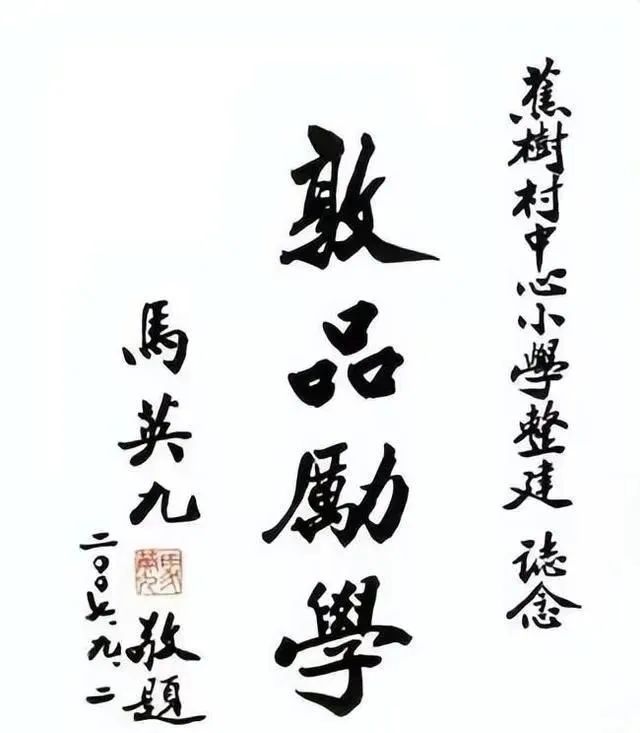 蕉樹村中心小學整建 誌念
敦品勵學
馬英九
馬英九
敬題
二〇〇七.九.二